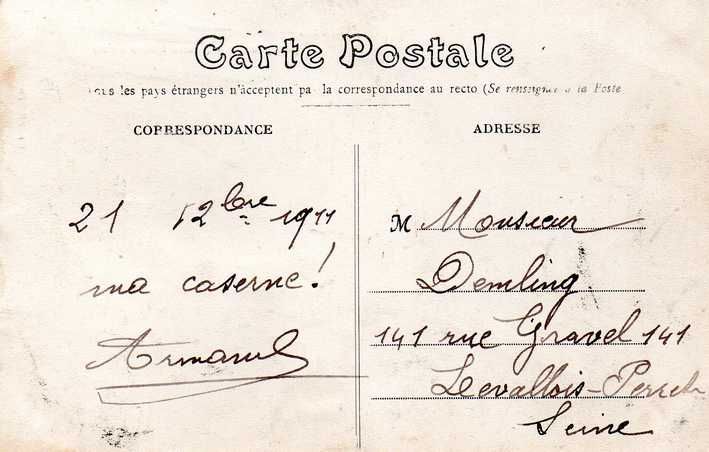 Carte Postale
Tous les pays étrangers n'acceptent pas la correspondance au recto (Se renseigner à la Poste
CORRESPONDANCE
ADRESSE
21 12bre 1911
ma caserne!
Armand
M Monsieur
Demling
141 rue Gravel 141
Levallois-Perret
Seine